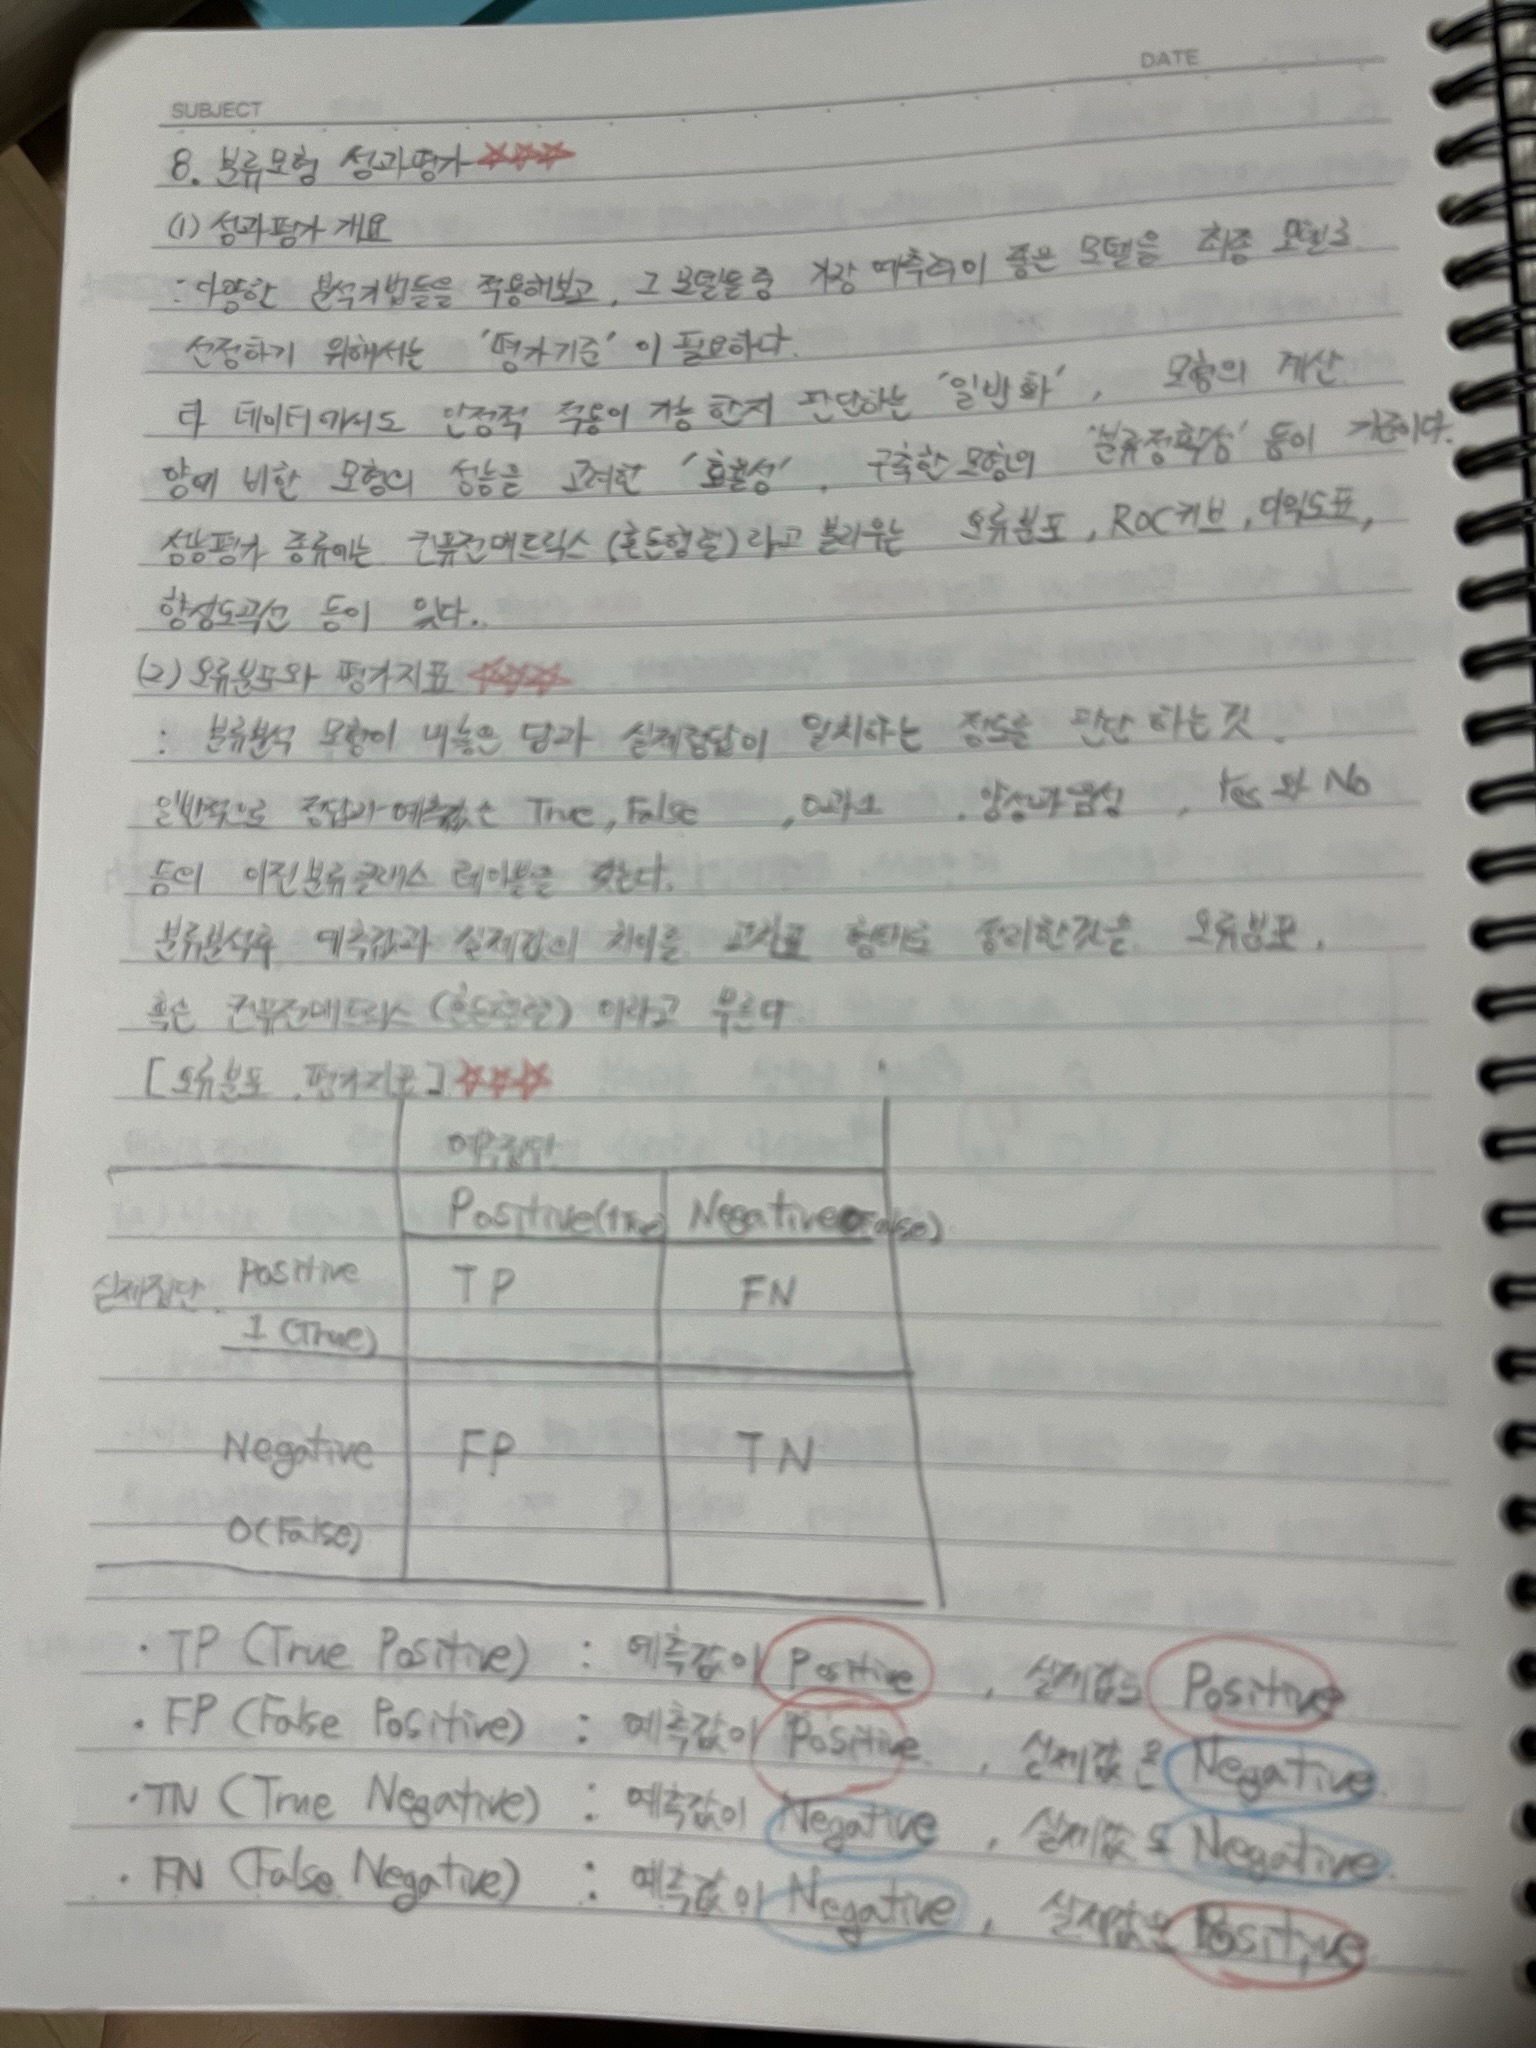 DATE
SUBJECT
8. 분류모형 성과평가 ☆☆☆
(1) 성과평가 개요
: 다양한 분석기법들을 적용해보고, 그 모델들중 가장 예측력이 좋은 모델을 최종 모델로
선정하기 위해서는 '평가기준'이 필요하다.
타 데이터에서도 안정적 적용이 가능한지 판단하는 '일반화', 모형의 계산
양에 비한 모형의 성능을 고려한 '효율성', 구축한 모형의 '분류정확성' 등이 기준이다.
성능평가 종류에는 컨퓨전매트릭스(혼돈행렬)라고 불리우는 오류분포, ROC커브, 이익도표,
향상도곡선 등이 있다.
(2) 오류분포와 평가지표 ☆☆☆
: 분류분석 모형이 내놓은 답과 실제정답이 일치하는 정도를 판단하는 것.
일반적으로 정답과 예측값은 True, False , 0과1 , 양성과음성 , Yes와 No
등의 이진분류클래스 레이블을 갖는다.
분류분석후 예측값과 실제값의 차이를 교차표 형태로 정리한것은 오류분포,
혹은 컨퓨전매트릭스(혼돈행렬)이라고 부른다
[오류분포, 평가지표] ☆☆☆
예측집단
Positive(1 True) Negative(0 False)
실제집단 Positive TP FN
1 (True)
Negative FP TN
0(False)
· TP (True Positive) : 예측값이 Positive , 실제값도 Positive
· FP (False Positive) : 예측값이 Positive , 실제값은 Negative.
· TN (True Negative) : 예측값이 Negative , 실제값도 Negative.
· FN (False Negative) : 예측값이 Negative , 실제값은 Positive